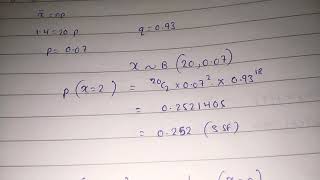 x̄ = np
1.4 = 20 p q = 0.93
p = 0.07
X ~ B (20, 0.07)
p (x = 2) = ²⁰C₂ × 0.07² × 0.93¹⁸
= 0.2521405
= 0.252 (3 SF)